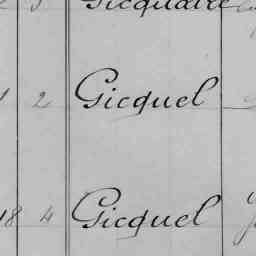 3 Gicquaire
1 2 Gicquel
18 4 Gicquel